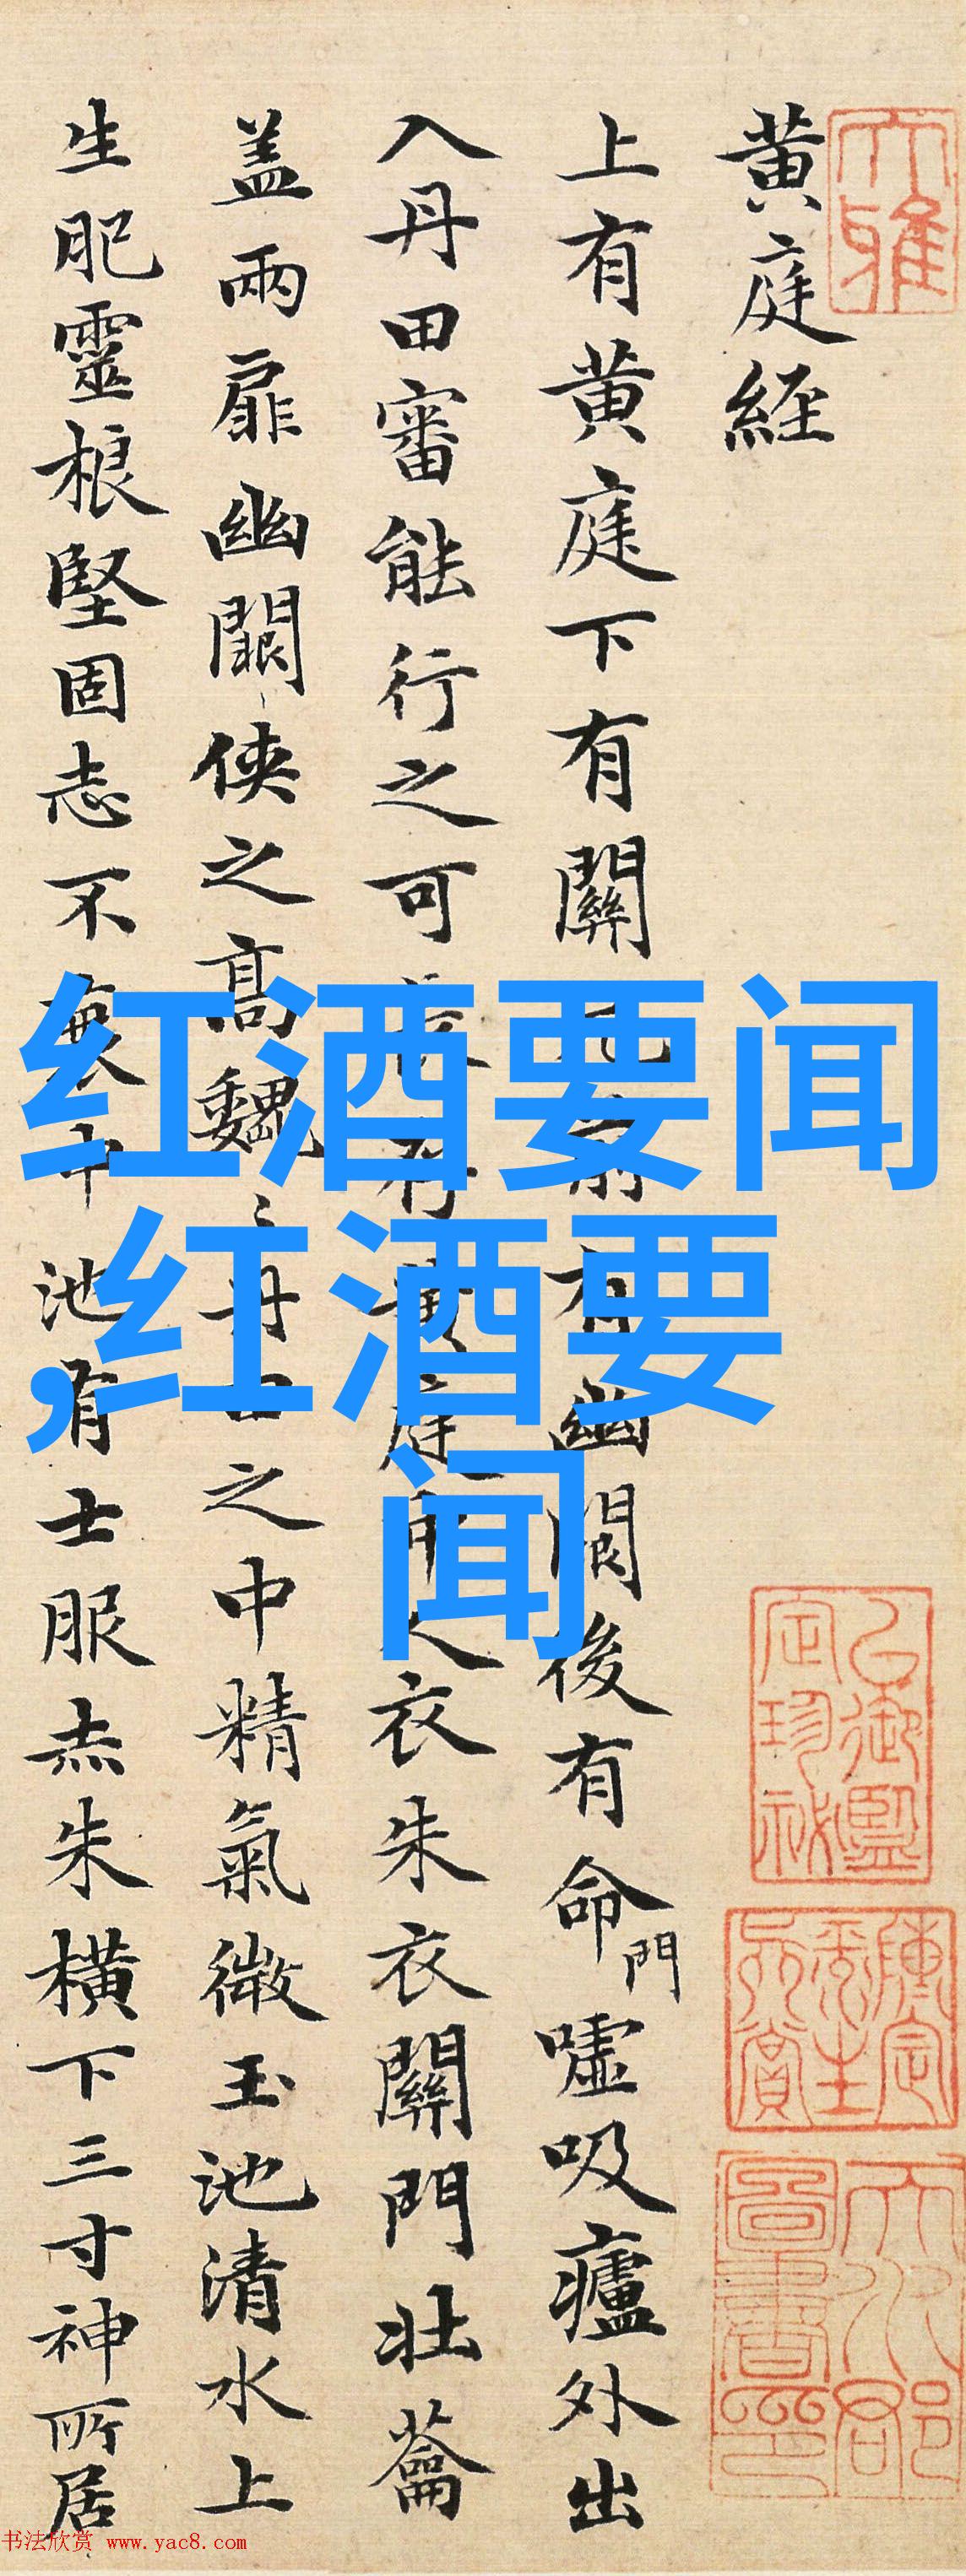 黄庭经
上有黄庭下有關元前有幽闕後有命門嘘吸廬外出
入丹田審能行之可長存黄庭中人衣朱衣關門壮蘥
盖兩扉幽闕侠之高魏〻丹田之中精氣微玉池清水上
生肥靈根堅固志不衰中池有士服赤朱横下三寸神所居
大雅
红酒要闻
,红酒要
闻
书法欣赏 www.yac8.com